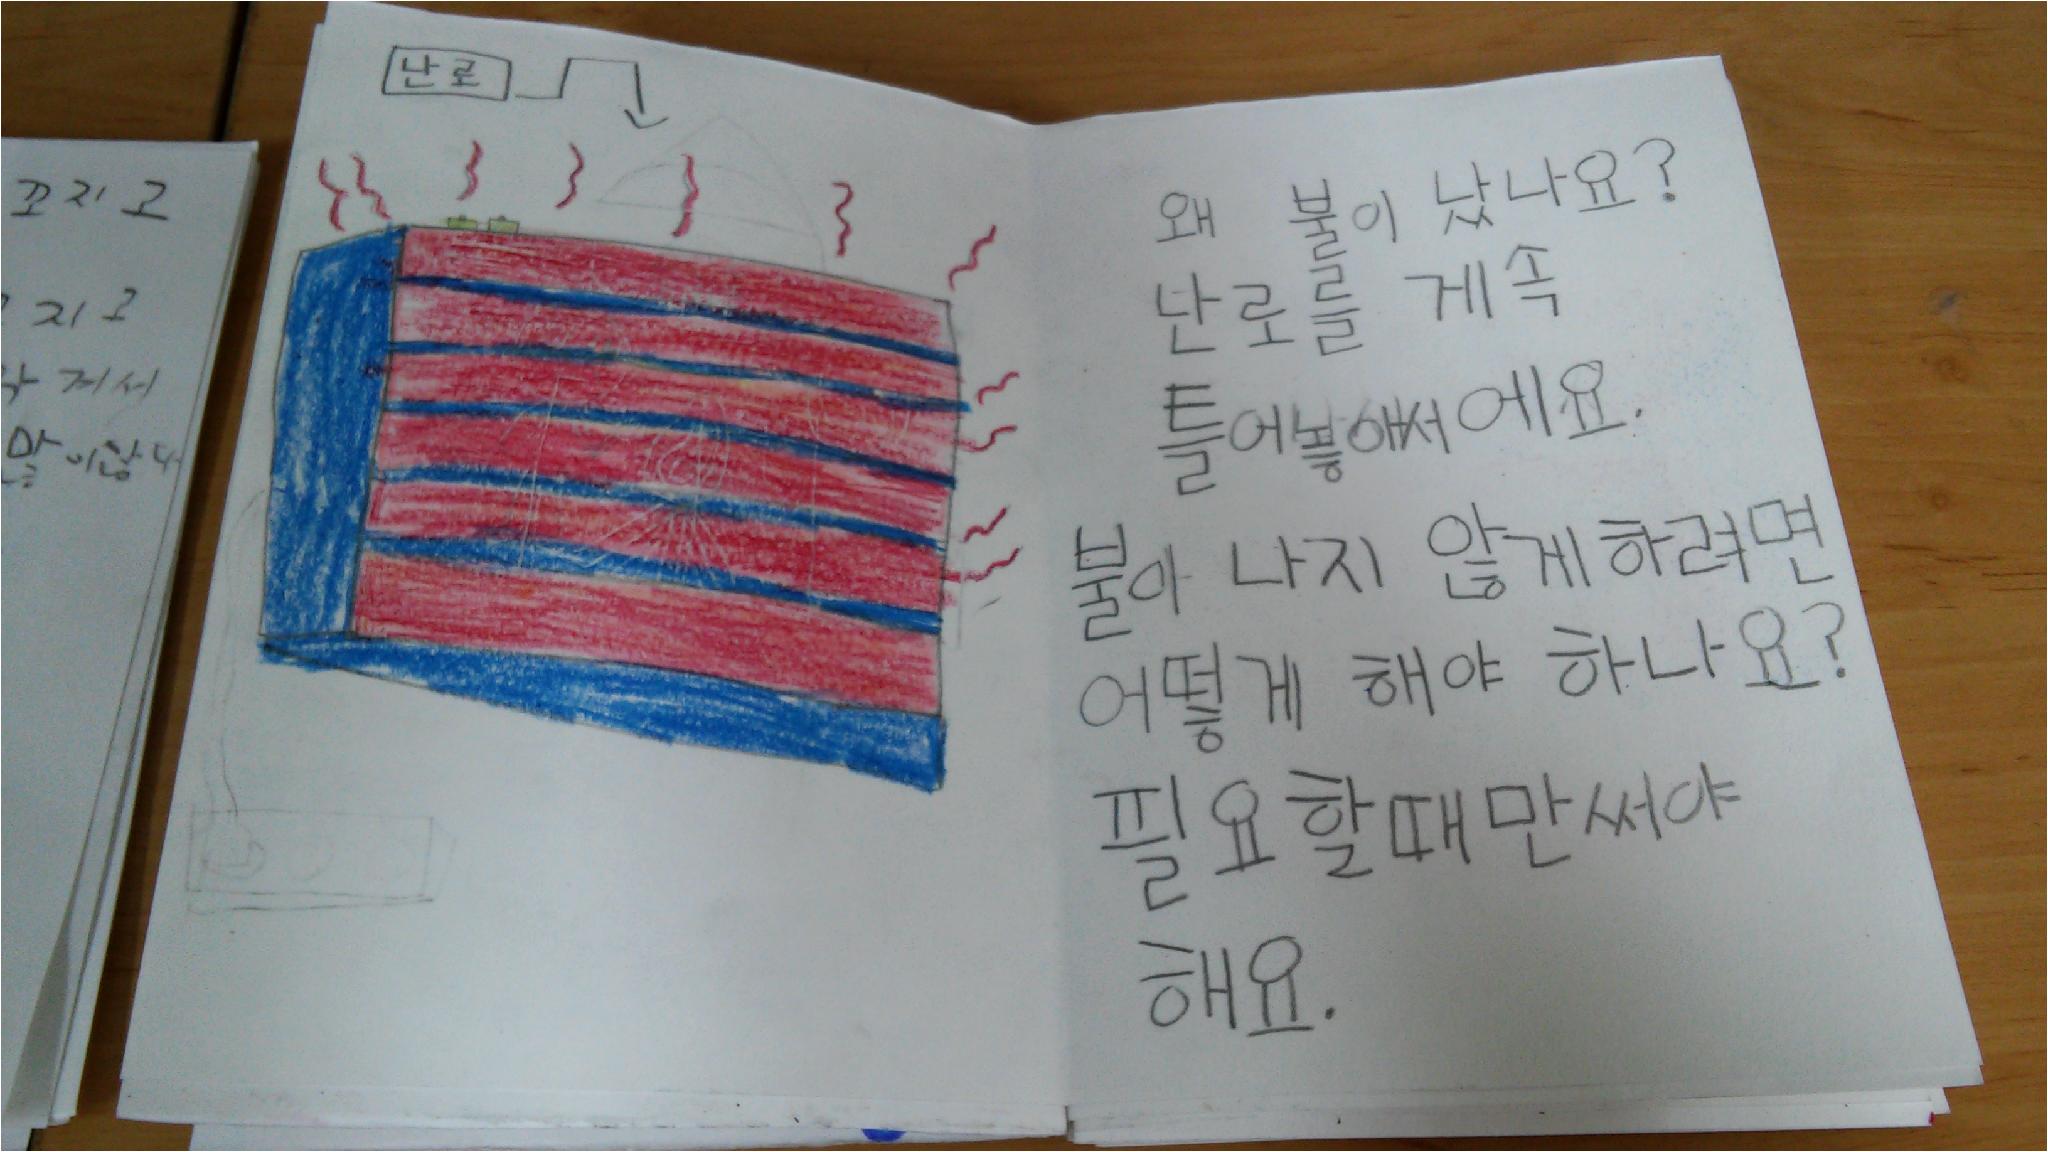 꼬지고
지고
져서
말이합니
난로
왜 불이 났나요?
난로를 게속
틀어놓애서에요.
불이 나지 않게하려면
어떻게 해야 하나요?
필요할때만써야
해요.